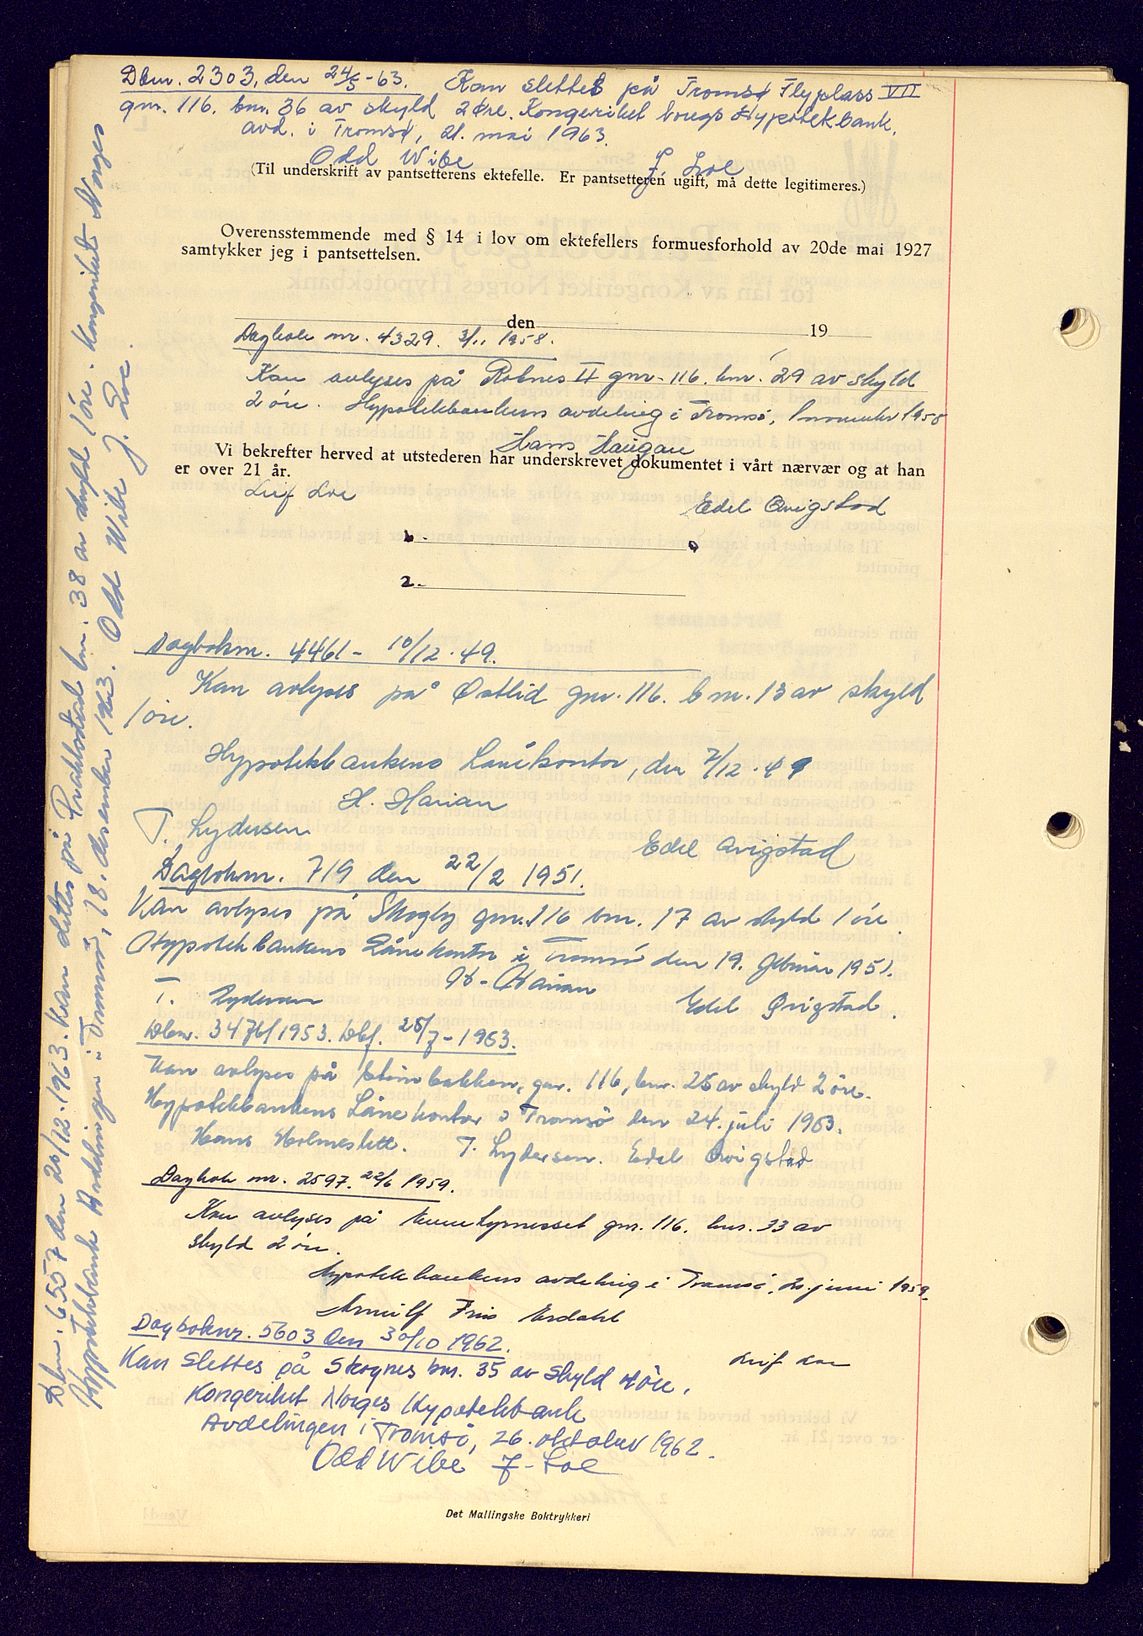 Dbnr. 2303, den 24/5-63. Kan slettes på Tromsø Flyplass VII
gnr. 116. bnr. 36 av skyld 2 øre. Kongeriket Norges Hypotekbank.
avd. i Tromsø, 21. mai 1963.
Odd Wibe J. Loe
(Til underskrift av pantsetterens ektefelle. Er pantsetteren ugift, må dette legitimeres.)
Overensstemmende med § 14 i lov om ektefellers formuesforhold av 20de mai 1927
samtykker jeg i pantsettelsen.
den 19
Dagbok nr. 4329. 3/11 1958.
Kan avlyses på Robnes II gnr. 116. bnr. 29 av skyld
2 øre. Hypotekbankens avdeling i Tromsø, 1 november 1958
Hans Haugan
Vi bekrefter herved at utstederen har underskrevet dokumentet i vårt nærvær og at han
er over 21 år.
Leif Loe Edel Øvigstad
1.
2.
Dagboknr. 4461 - 10/12 - 49.
Kan avlyses på Østlid gnr. 116. bnr. 13 av skyld
1 øre.
Hypotekbankens Lånekontor, den 7/12 - 49
H. Harian
T. Lydersen Edel Øvigstad
Dagboknr. 719 den 22/2 1951.
Kan avlyses på Skogly gnr. 116 bnr. 17 av skyld 1 øre.
Hypotekbankens Lånekontor i Tromsø den 19. februar 1951.
H. Harian
T. Lydersen Edel Øvigstad.
Dbnr. 3476/1953. Dbf. 25/7-1953.
Kan avlyses på Steinbakken, gnr. 116, bnr. 25 av skyld 2 øre.
Hypotekbankens Lånekontor i Tromsø den 24. juli 1953.
Hans Holmeslett. T. Lydersen. Edel Øvigstad
Dagbok nr. 2597. 22/6 1959.
Kan avlyses på gnr. 116. bnr. 33 av
skyld 2 øre.
Hypotekbankens avdeling i Tromsø, 20. juni 1959.
Arnulf Friis
Leif Loe
Dagboknr. 5603 den 30/10 1962.
Kan slettes på Skognes bnr. 35 av skyld 4 øre.
Kongeriket Norges Hypotekbank
Avdelingen i Tromsø, 26. oktober 1962.
Odd Wibe J. Loe
Det Mallingske Boktrykkeri
Dbnr. 6557 den 20/12-1963. Kan slettes på bnr. 38 av skyld 1 øre. Kongeriket Norges
Hypotekbank Avdelingen i Tromsø, 18. desember 1963. Odd Wibe J. Loe.